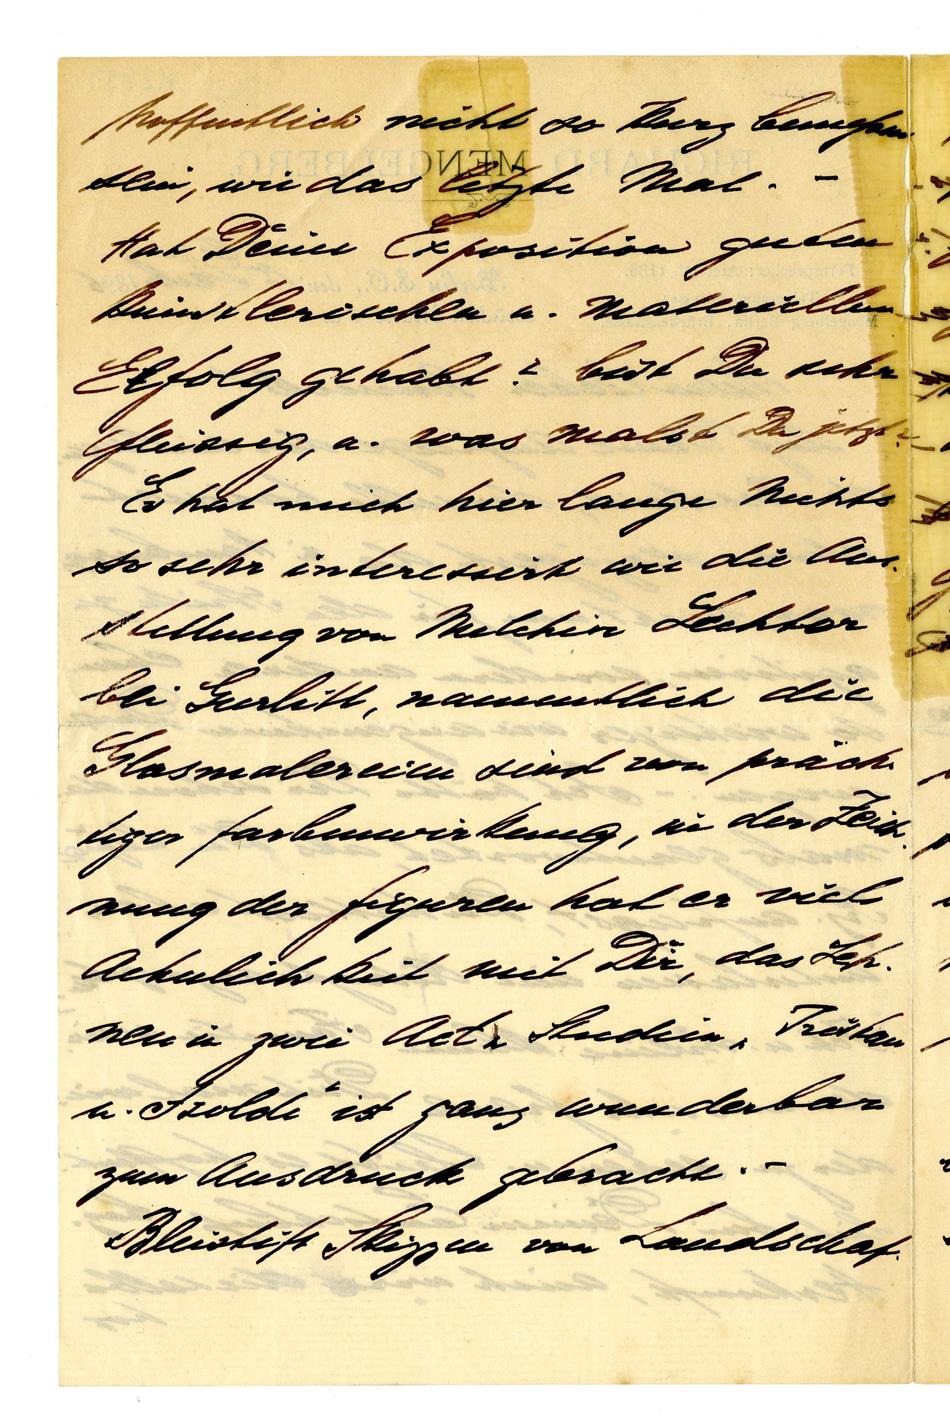 hoffentlich nicht so kurz bemessen
sein, wie das letzte Mal. –
Hat Deine Exposition guten
künstlerischen u. materiellen
Erfolg gehabt? bist Du sehr
fleissig, u. was malst Du jetzt?
Es hat mich hier lange Nichts
so sehr interessirt wie die Aus-
stellung von Melchior Lechter
bei Gurlitt, namentlich die
Glasmalereien sind von präch-
tiger Farbenwirkung, in der Zeich-
nung der Figuren hat er viel
Aehnlichkeit mit Dir, das Seh-
nen in zwei Act Studien „Tristan
u. Isolde" ist ganz wunderbar
zum Ausdruck gebracht. –
Bleistift Skizzen von Landschaf-